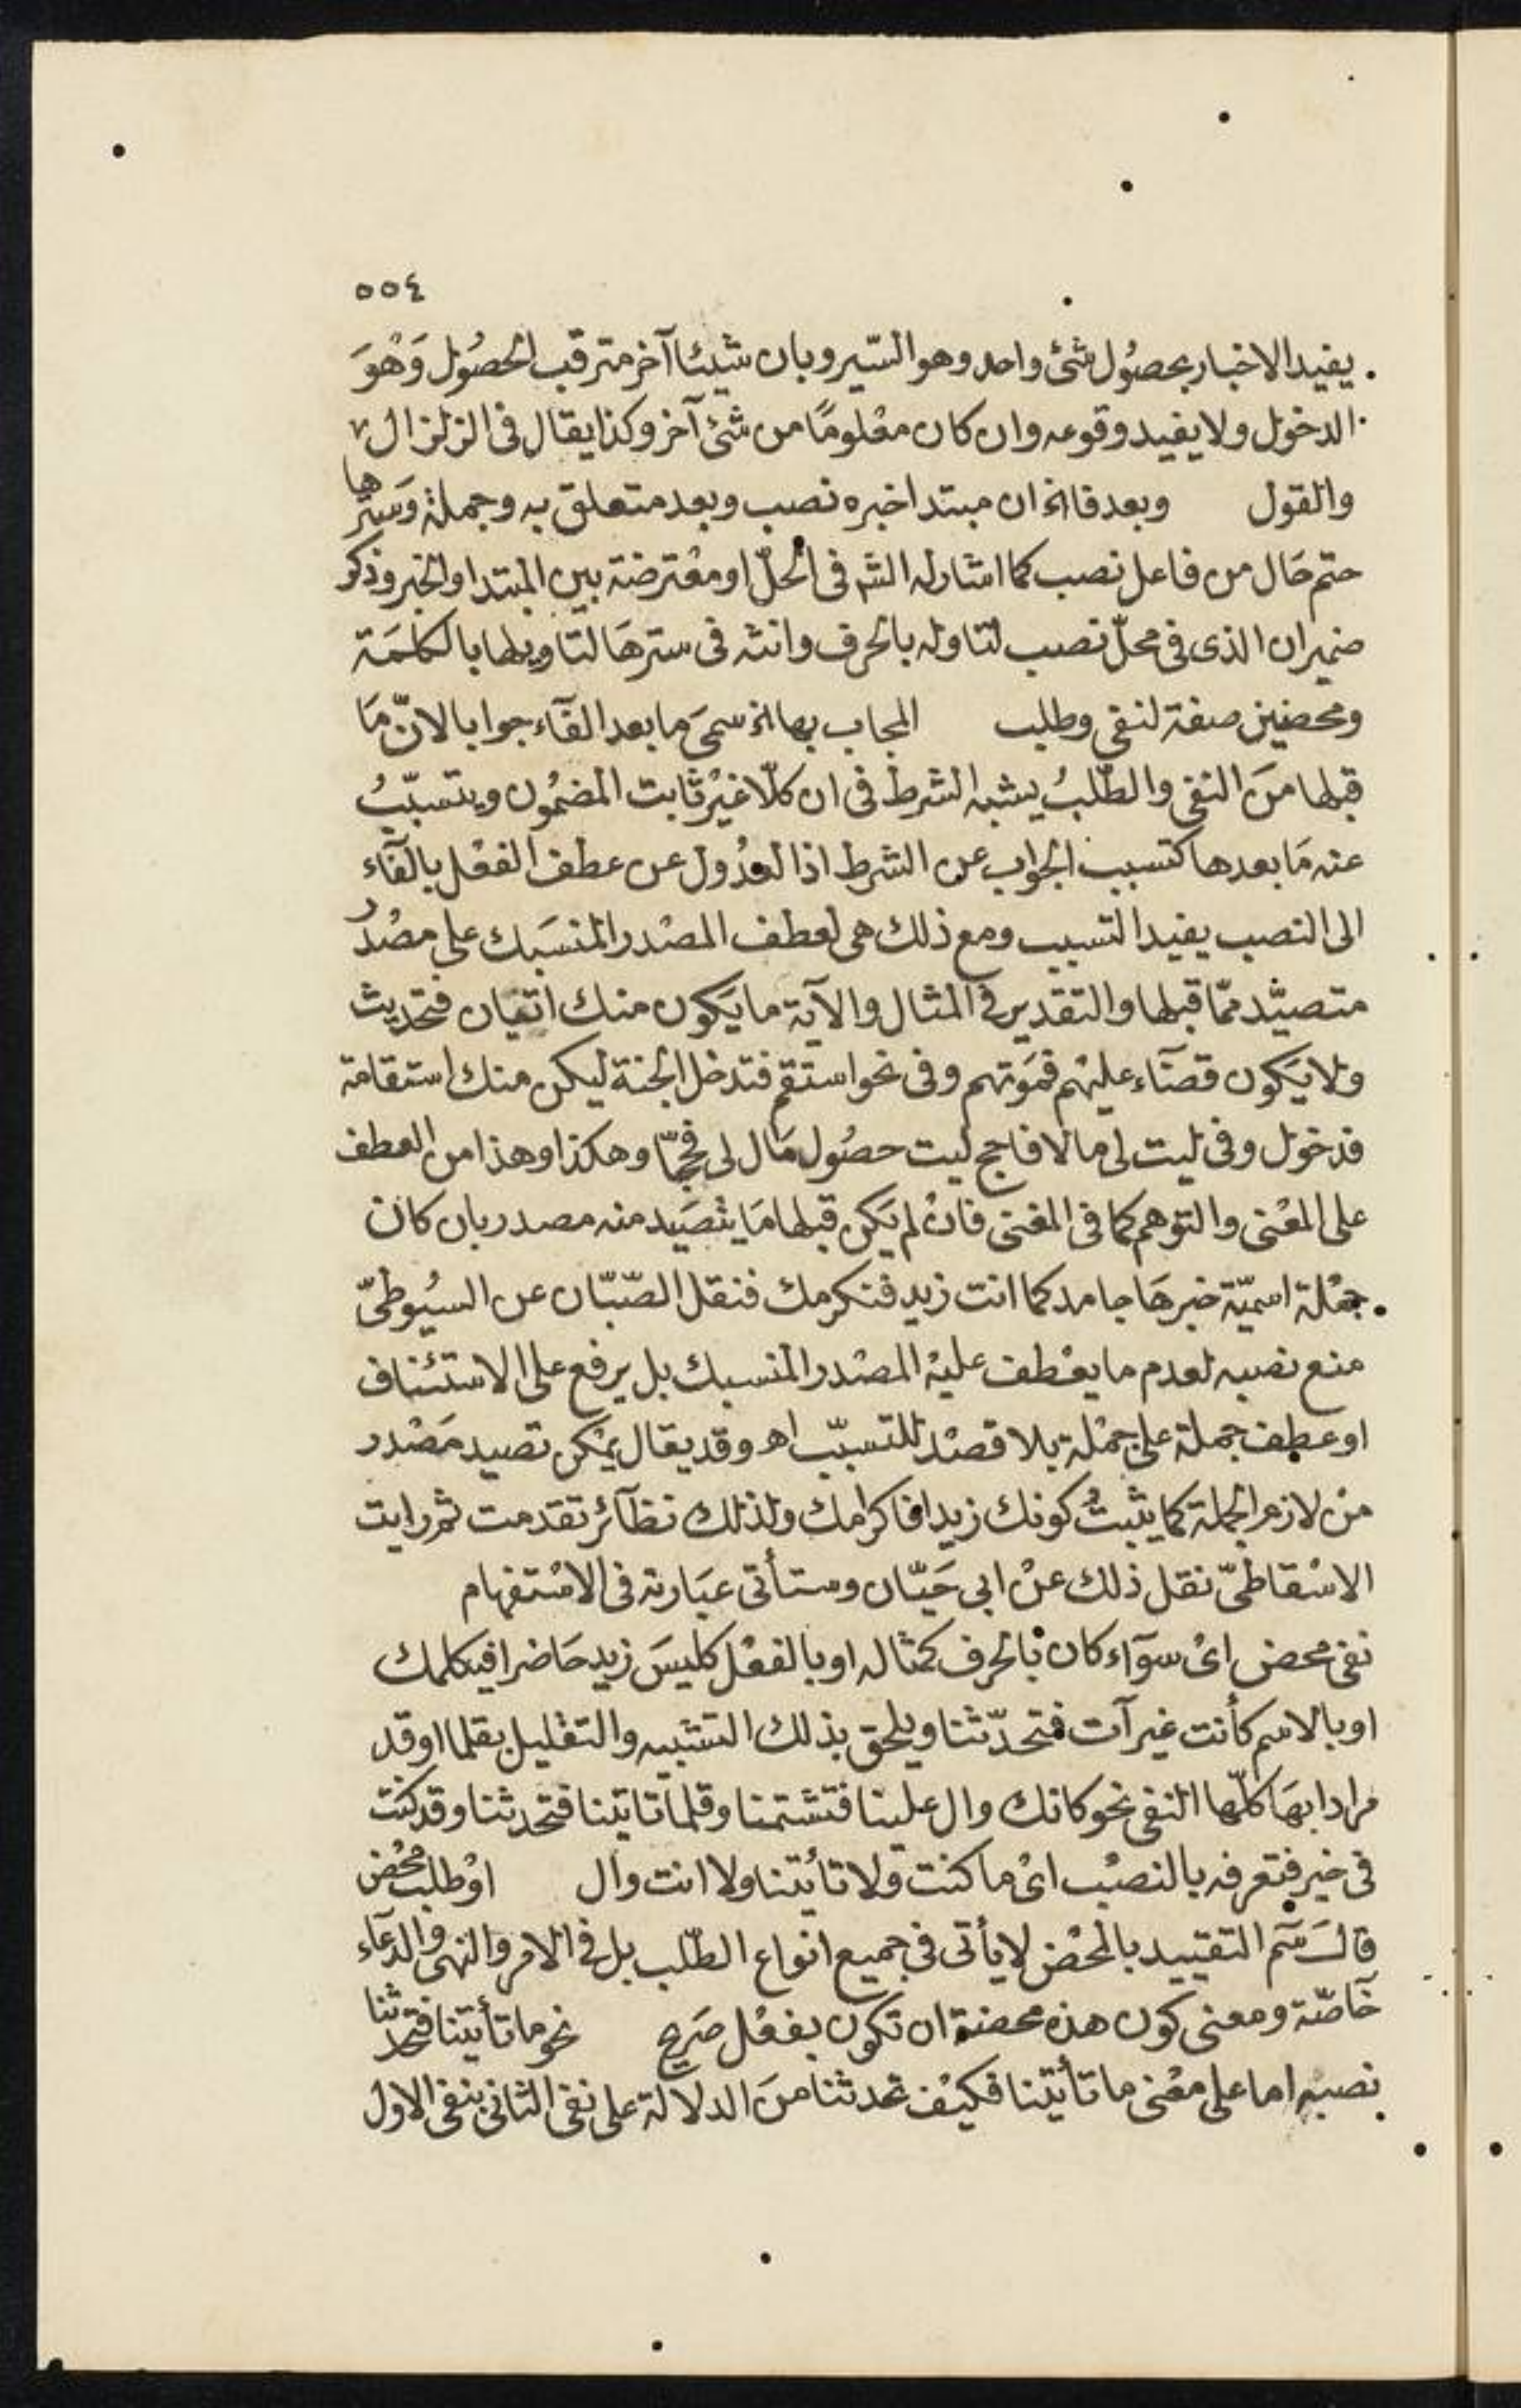 ٥٥٤
يفيد الاخبار بحصُول شئ واحد وهو السّير وبان شيئا آخر مترقب الحصُول وَهْوَ
الدخول ولا يفيد وقوعه وان كان معْلومًا من شئ آخر وكذا يقال فى الزلزال
والقول وبعد فا الخ ان مبتدا خبره نصب وبعد متعلق به وجملة وَسترها
حتم حَال من فاعل نصب كما اشار له الشه فى الحلّ او معْترضة بين المبتدا والخبر وذكر
ضمير ان الذى فى محلّ نصب لتاوله بالحرف وانثه فى سترهَا لتاويلها بالكلمَة
ومحضين صفة لنفى وطلب المجاب بها الخ سمىَ ما بعد الفآء جوابا لانّ مَا
قبلها منَ النفى والطّلبُ يشبه الشرط فى ان كلّا غيْر ثابت المضمُون ويتسبّبُ
عنه مَا بعدها كتسبب الجواب عن الشرط اذا لعدُول عن عطف الفعْل بالفآء
الى النصب يفيد التسبب ومع ذلك هى لعطف المصْدر المنسَبك على مصْدر
متصيّد ممّا قبلها والتقدير فى المثال والآية ما يَكون منك اتيَان فتحديث
ولا يَكون قضآء عليهْم فمَوتهم وفى نحو استقم فتدخل الجنة ليكن منك استقامة
فدخول وفى ليت لى مالا فاحج ليت حصُول مَال لى فحجّا وهكذا وهذا من العطف
على المعْنى والتوهم كما فى المغنى فانْ لم يَكن قبلها مَا يتصَيد منه مصدر بان كان
جمْلة اسميّة خبرهَا جامد كما انت زيد فنكرمك فنقل الصّبّان عن السيُوطىّ
منع نصبه لعدم ما يعْطف عليْه المصْدر المنسبك بل يرفع على الاستئناف
او عطف جملة على جمْلة بلا قصْد للتسبّب اهـ وقد يقال يمْكن تصيد مَصْدر
منْ لازم الجملة كما يثبتُ كونك زيدا فاكرامك ولذلك نظآئر تقدمت ثم رايت
الاسْقاطىّ نقل ذلك عنْ ابى حَيّان وستأتى عبَارته فى الاسْتفهام
نفى محض اىْ سوَآء كان بالحرف كمثاله او بالفعْل كليسَ زيد حَاضرا فيكلمك
او بالاسم كأنت غير آت فتحدّثنا ويلحق بذلك التشبيه والتقليل بقلما او قد
مرادا بهَا كلّها النفى نحو كانك وال علينا فتشتمنا وقلمَا تاتينا فتحدثنا وقد كنت
فى خير فتعرفه بالنصْب اىْ ما كنت ولا تأتينا ولا انت وال اوْ طلب محْض
قالَ سَم التقييد بالمحْض لا يأتى فى جميع انواع الطّلب بل فى الامر والنهى والدعآء
خآصّة ومعنى كون هذه محضة ان تكون بفعْل صَريح نحو ما تأتينا فتحدثنا
نصبه اما على معْنى ما تأتينا فكيْف تحدثنا منَ الدلالة على نفى الثانى بنفى الاول